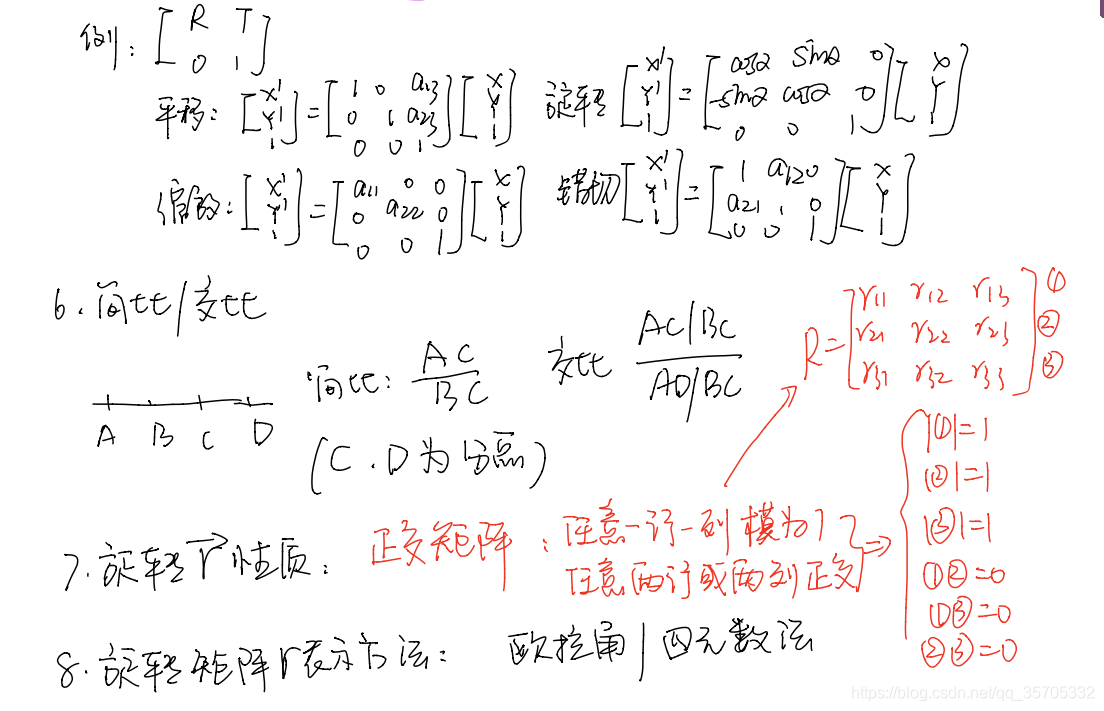 例: [R T; 0 1]
平移: [X'; Y'; 1] = [1 0 a13; 0 1 a23; 0 0 1] [X; Y; 1]
旋转 [X'; Y'; 1] = [cosα sinα 0; -sinα cosα 0; 0 0 1] [X; Y; 1]
缩放: [X'; Y'; 1] = [a11 0 0; 0 a22 0; 0 0 1] [X; Y; 1]
错切 [X'; Y'; 1] = [1 a12 0; a21 1 0; 0 0 1] [X; Y; 1]
6. 简比/交比
A B C D
简比: AC/BC
交比 (AC/BC)/(AD/BC)
(C.D为分点)
R = [r11 r12 r13; r21 r22 r23; r31 r32 r33] ① ② ③
7. 旋转r性质:
正交矩阵: 任意一行一列模为1
任意两行或两列正交 ⇒
|①|=1
|②|=1
|③|=1
①②=0
①③=0
②③=0
8. 旋转矩阵r表示方法: 欧拉角/四元数法
https://blog.csdn.net/qq_35705332